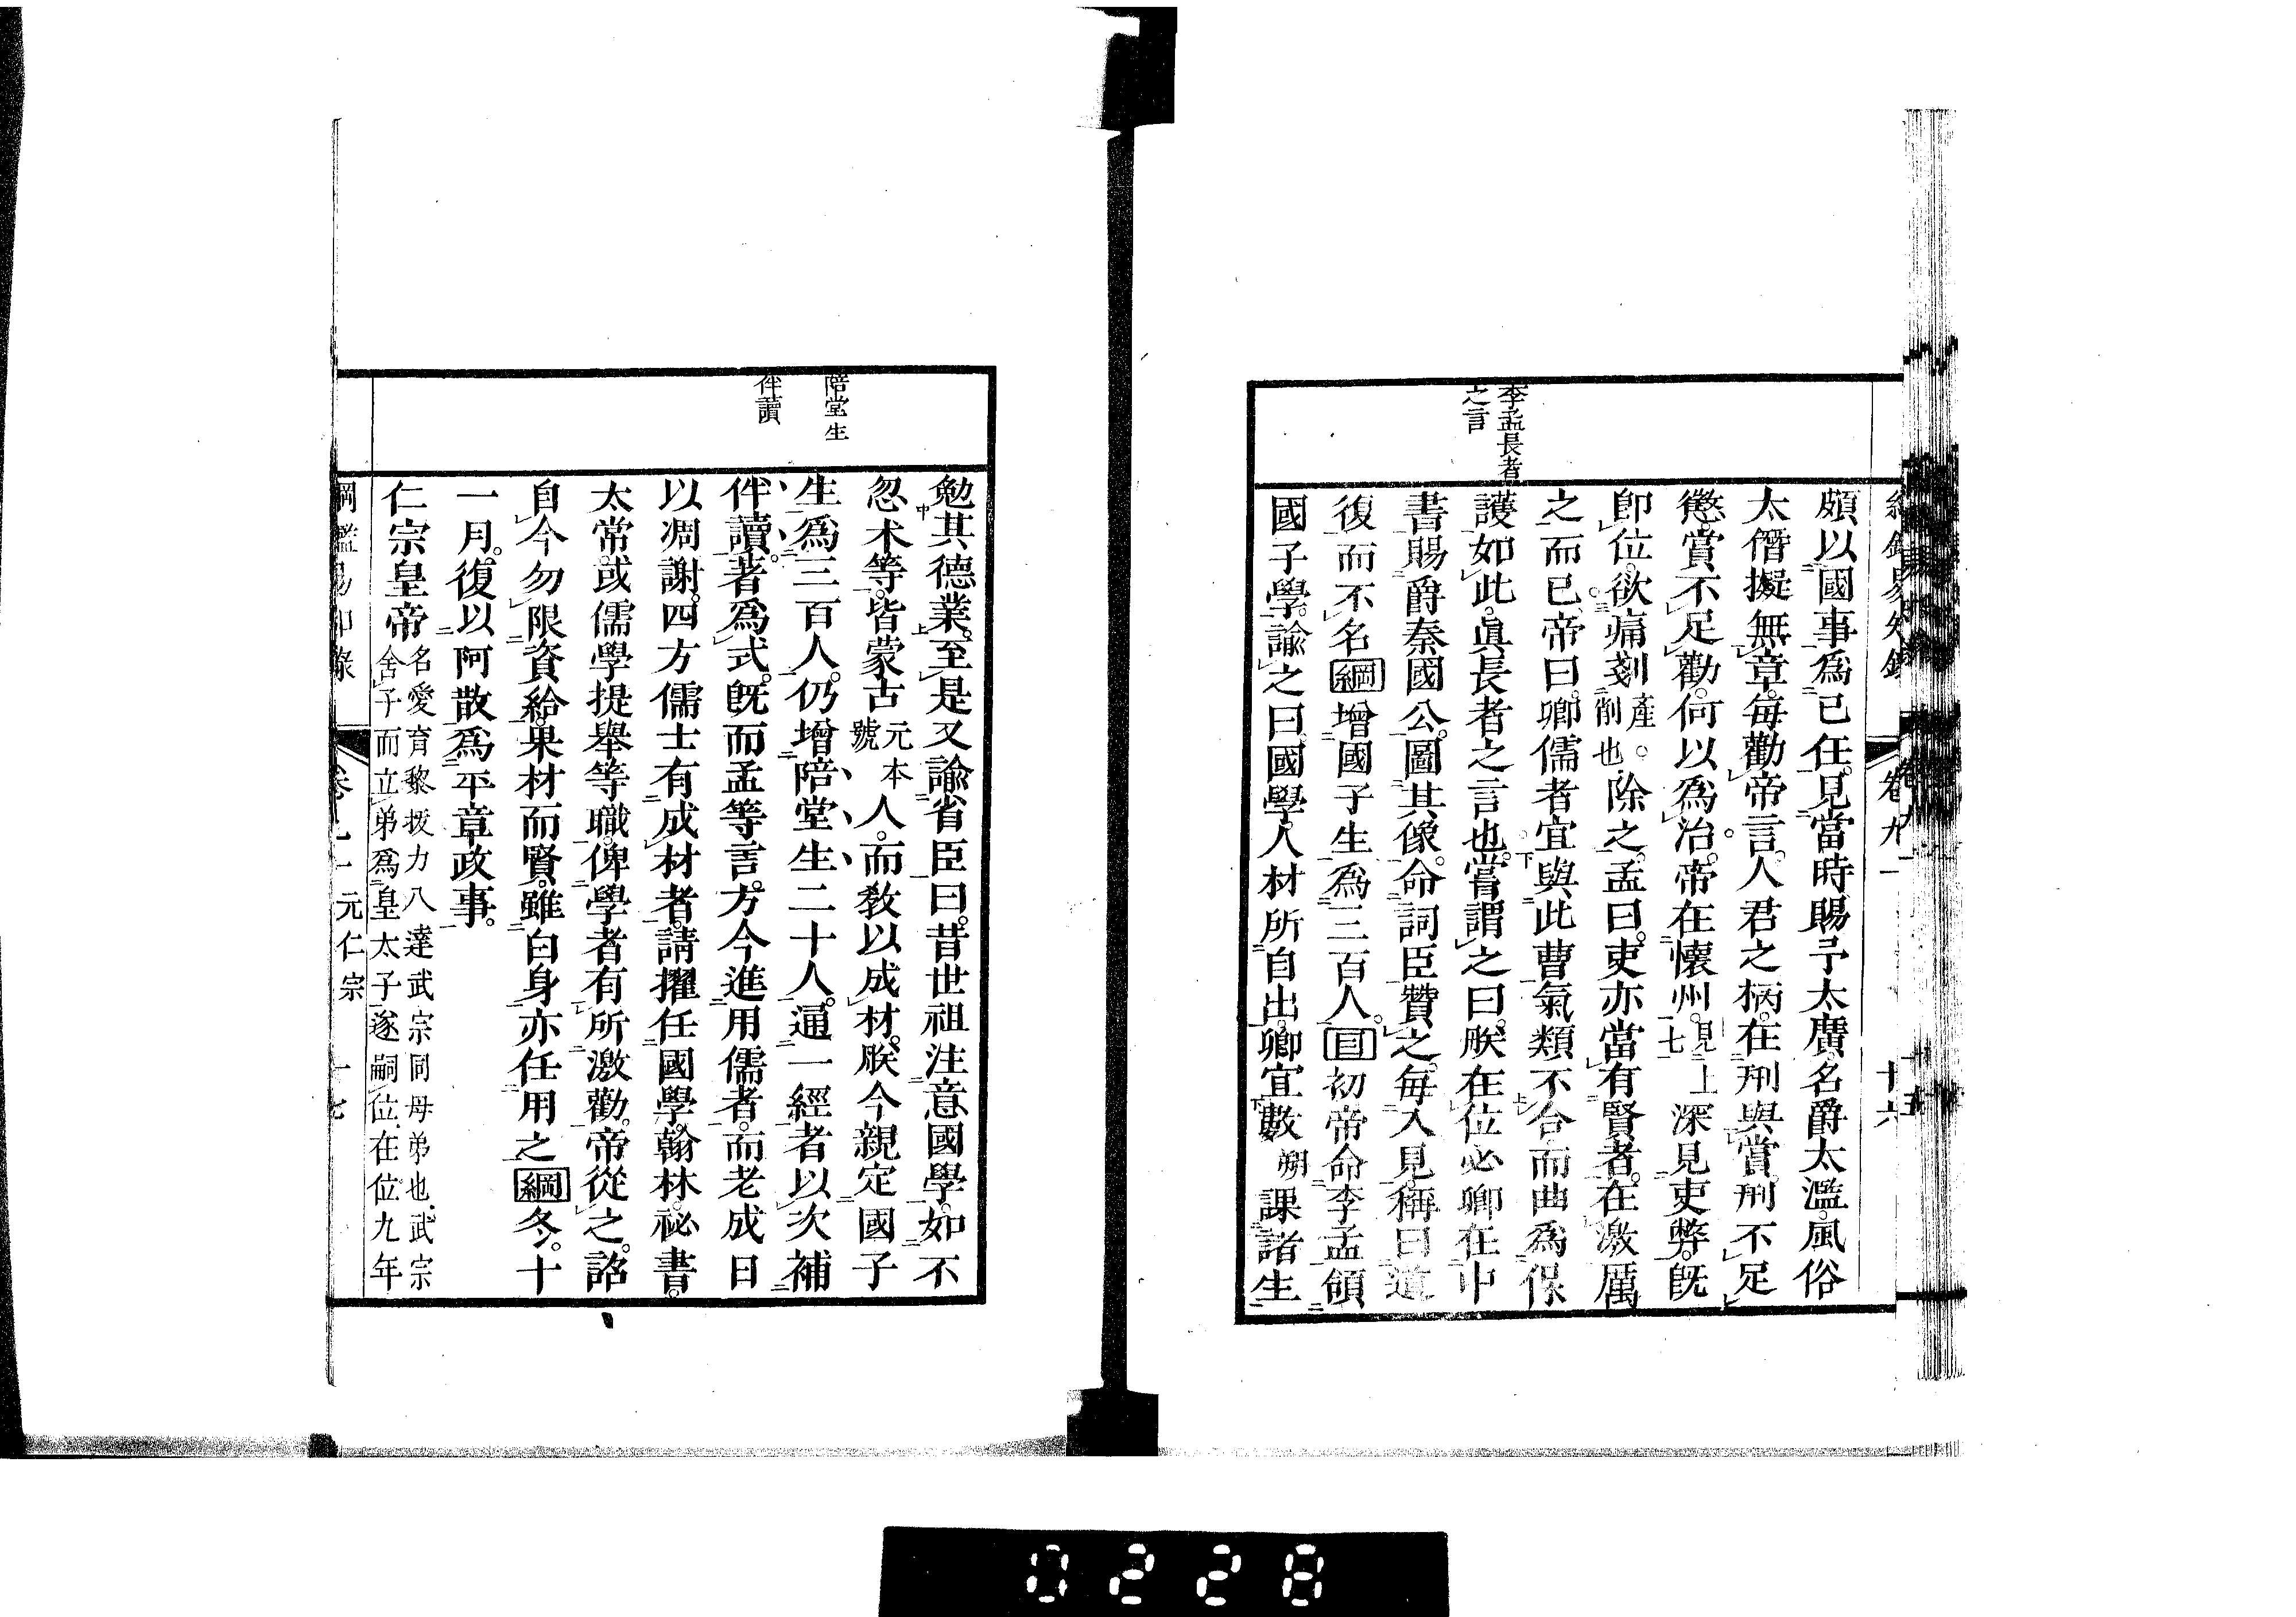 李孟長者
之言
頗以國事爲已任。見當時賜予太廣。名爵太濫。風俗
太僭擬無章。每勸帝言。人君之柄。在刑與賞。刑不足
懲。賞不足勸。何以爲治。帝在懷州。見上七深見吏弊。旣
卽位。欲痛剗產。削也。除之。孟曰。吏亦當有賢者。在激厲
之而已。帝曰。卿儒者宜與此曹氣類不合而曲爲保
護如此。眞長者之言也。嘗謂之曰。朕在位必卿在中
書。賜爵秦國公。圖其像。命詞臣贊之。每入見。稱曰道
復而不名綱增國子生爲三百人。目初帝命李孟領
國子學。諭之曰。國學人材所自出。卿宜數朔課諸生
陪堂生
伴讀
勉其德業。至是又諭省臣曰。昔世祖注意國學。如不
忽木等。皆蒙古元本號人。而敎以成材。朕今親定國子
生爲三百人。仍增陪堂生二十人。通一經者以次補
伴讀。著爲式。旣而孟等言。方今進用儒者。而老成日
以凋謝。四方儒士有成材者。請擢任國學。翰林。祕書。
太常或儒學提舉等職。俾學者有所激勸。帝從之。詔
自今勿限資給。果材而賢。雖白身亦任用之綱冬。十
一月。復以阿散爲平章政事。
仁宗皇帝名愛育黎拔力八達武宗同母弟也。武宗
舍子而立弟爲皇太子遂嗣位。在位九年
元仁宗
0228